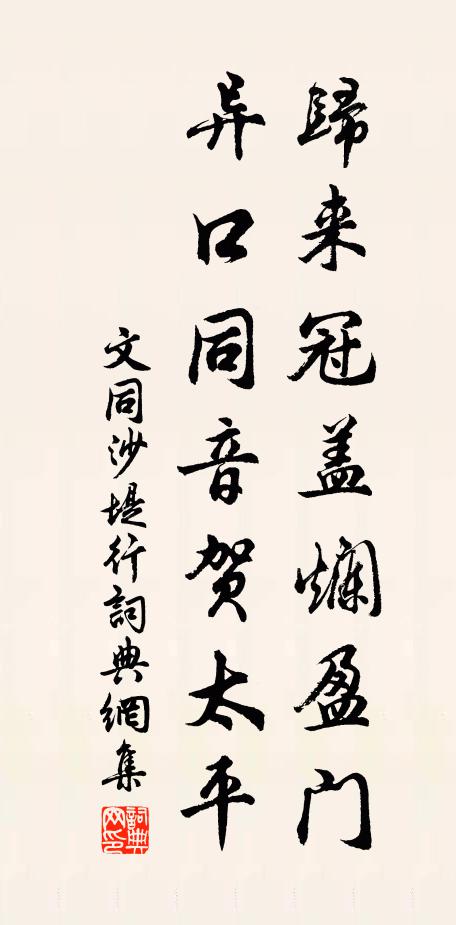 歸来冠盖爛盈门
异口同音贺太平
文同沙堤行詞典網集
詞典网印